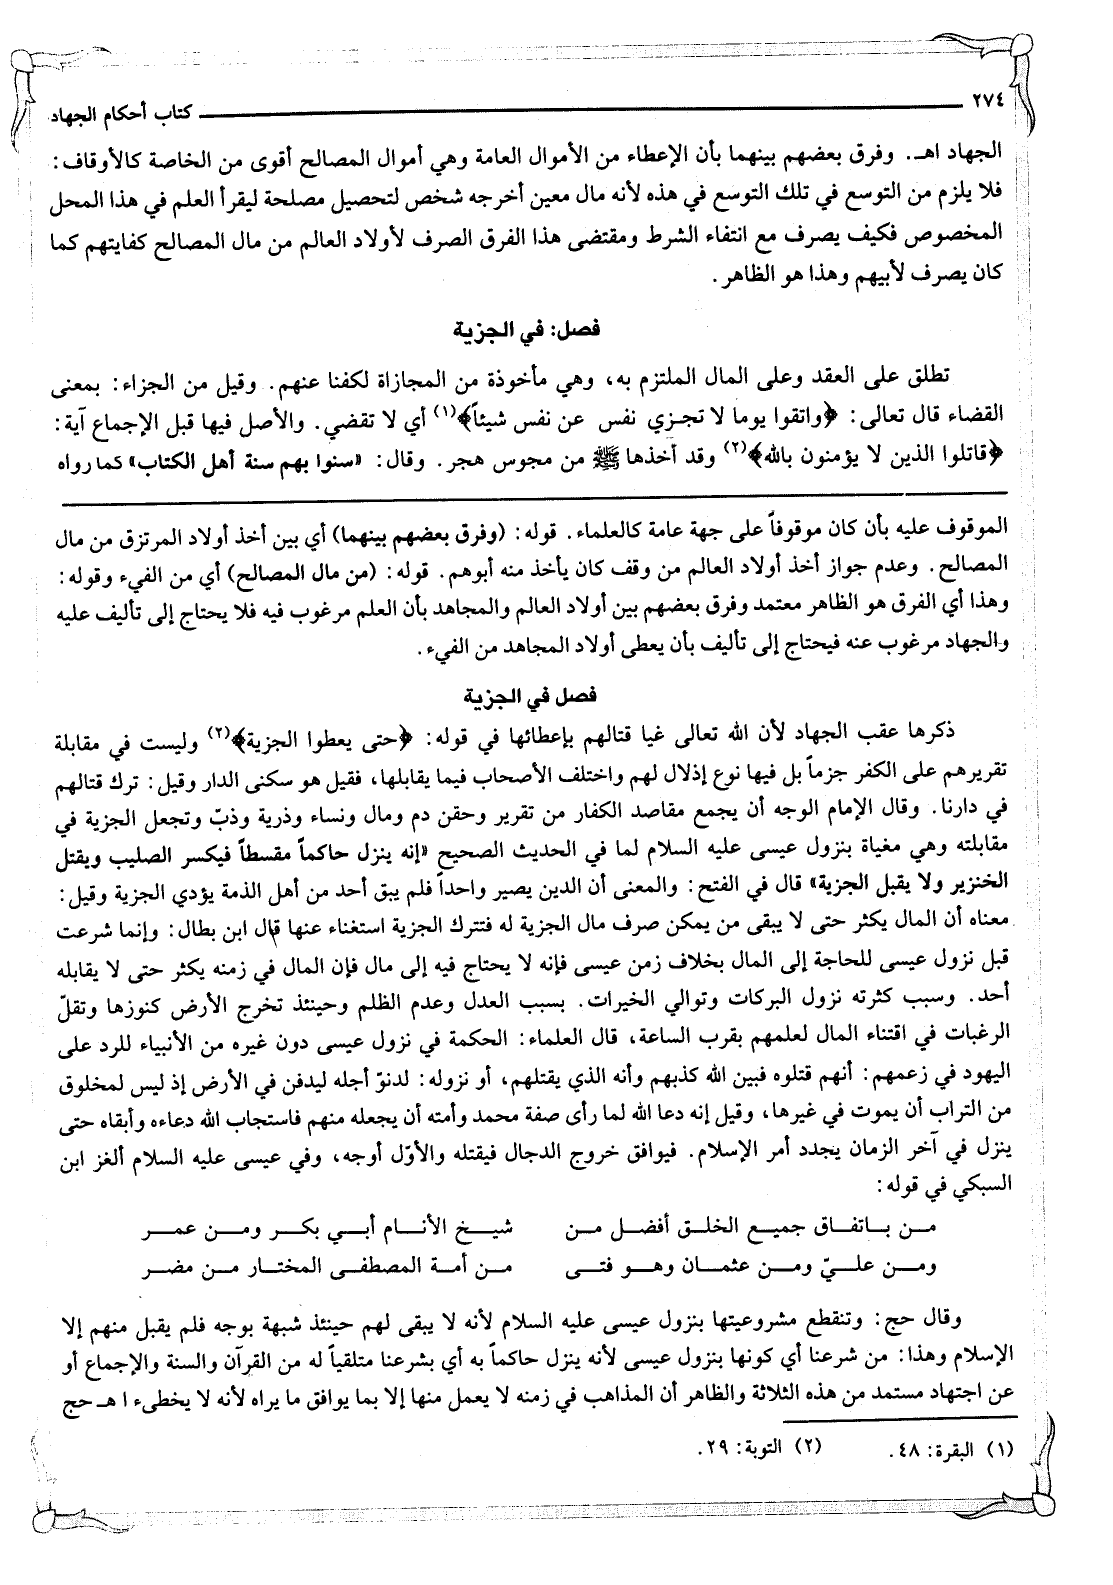 ٢٧٤ كتاب أحكام الجهاد
الجهاد اهـ. وفرق بعضهم بينهما بأن الإعطاء من الأموال العامة وهي أموال المصالح أقوى من الخاصة كالأوقاف:
فلا يلزم من التوسع في تلك التوسع في هذه لأنه مال معين أخرجه شخص لتحصيل مصلحة ليقرأ العلم في هذا المحل
المخصوص فكيف يصرف مع انتفاء الشرط ومقتضى هذا الفرق الصرف لأولاد العالم من مال المصالح كفايتهم كما
كان يصرف لأبيهم وهذا هو الظاهر.
فصل: في الجزية
تطلق على العقد وعلى المال الملتزم به، وهي مأخوذة من المجازاة لكفنا عنهم. وقيل من الجزاء: بمعنى
القضاء قال تعالى: ﴿واتقوا يوما لا تجزي نفس عن نفس شيئاً﴾(١) أي لا تقضي. والأصل فيها قبل الإجماع آية:
﴿قاتلوا الذين لا يؤمنون بالله﴾(٢) وقد أخذها ﷺ من مجوس هجر. وقال: «سنوا بهم سنة أهل الكتاب» كما رواه
الموقوف عليه بأن كان موقوفاً على جهة عامة كالعلماء. قوله: (وفرق بعضهم بينهما) أي بين أخذ أولاد المرتزق من مال
المصالح. وعدم جواز أخذ أولاد العالم من وقف كان يأخذ منه أبوهم. قوله: (من مال المصالح) أي من الفيء وقوله:
وهذا أي الفرق هو الظاهر معتمد وفرق بعضهم بين أولاد العالم والمجاهد بأن العلم مرغوب فيه فلا يحتاج إلى تأليف عليه
والجهاد مرغوب عنه فيحتاج إلى تأليف بأن يعطى أولاد المجاهد من الفيء.
فصل في الجزية
ذكرها عقب الجهاد لأن الله تعالى غيا قتالهم بإعطائها في قوله: ﴿حتى يعطوا الجزية﴾(٢) وليست في مقابلة
تقريرهم على الكفر جزماً بل فيها نوع إذلال لهم واختلف الأصحاب فيما يقابلها، فقيل هو سكنى الدار وقيل: ترك قتالهم
في دارنا. وقال الإمام الوجه أن يجمع مقاصد الكفار من تقرير وحقن دم ومال ونساء وذرية وذبّ وتجعل الجزية في
مقابلته وهي مغياة بنزول عيسى عليه السلام لما في الحديث الصحيح «إنه ينزل حاكماً مقسطاً فيكسر الصليب ويقتل
الخنزير ولا يقبل الجزية» قال في الفتح: والمعنى أن الدين يصير واحداً فلم يبق أحد من أهل الذمة يؤدي الجزية وقيل:
معناه أن المال يكثر حتى لا يبقى من يمكن صرف مال الجزية له فتترك الجزية استغناء عنها قال ابن بطال: وإنما شرعت
قبل نزول عيسى للحاجة إلى المال بخلاف زمن عيسى فإنه لا يحتاج فيه إلى مال فإن المال في زمنه يكثر حتى لا يقابله
أحد. وسبب كثرته نزول البركات وتوالي الخيرات. بسبب العدل وعدم الظلم وحينئذ تخرج الأرض كنوزها وتقلّ
الرغبات في اقتناء المال لعلمهم بقرب الساعة، قال العلماء: الحكمة في نزول عيسى دون غيره من الأنبياء للرد على
اليهود في زعمهم: أنهم قتلوه فبين الله كذبهم وأنه الذي يقتلهم، أو نزوله: لدنوّ أجله ليدفن في الأرض إذ ليس لمخلوق
من التراب أن يموت في غيرها، وقيل إنه دعا الله لما رأى صفة محمد وأمته أن يجعله منهم فاستجاب الله دعاءه وأبقاه حتى
ينزل في آخر الزمان يجدد أمر الإسلام. فيوافق خروج الدجال فيقتله والأوّل أوجه، وفي عيسى عليه السلام ألغز ابن
السبكي في قوله:
مـن بـاتفـاق جميع الخلـق أفضـل مـن شيـخ الأنـام أبـي بكـر ومـن عمـر
ومـن علـيّ ومـن عثمـان وهـو فتـى مـن أمـة المصطفـى المختـار مـن مضـر
وقال حج: وتنقطع مشروعيتها بنزول عيسى عليه السلام لأنه لا يبقى لهم حينئذ شبهة بوجه فلم يقبل منهم إلا
الإسلام وهذا: من شرعنا أي كونها بنزول عيسى لأنه ينزل حاكماً به أي بشرعنا متلقياً له من القرآن والسنة والإجماع أو
عن اجتهاد مستمد من هذه الثلاثة والظاهر أن المذاهب في زمنه لا يعمل منها إلا بما يوافق ما يراه لأنه لا يخطىء اهـ حج
(١) البقرة: ٤٨. (٢) التوبة: ٢٩.